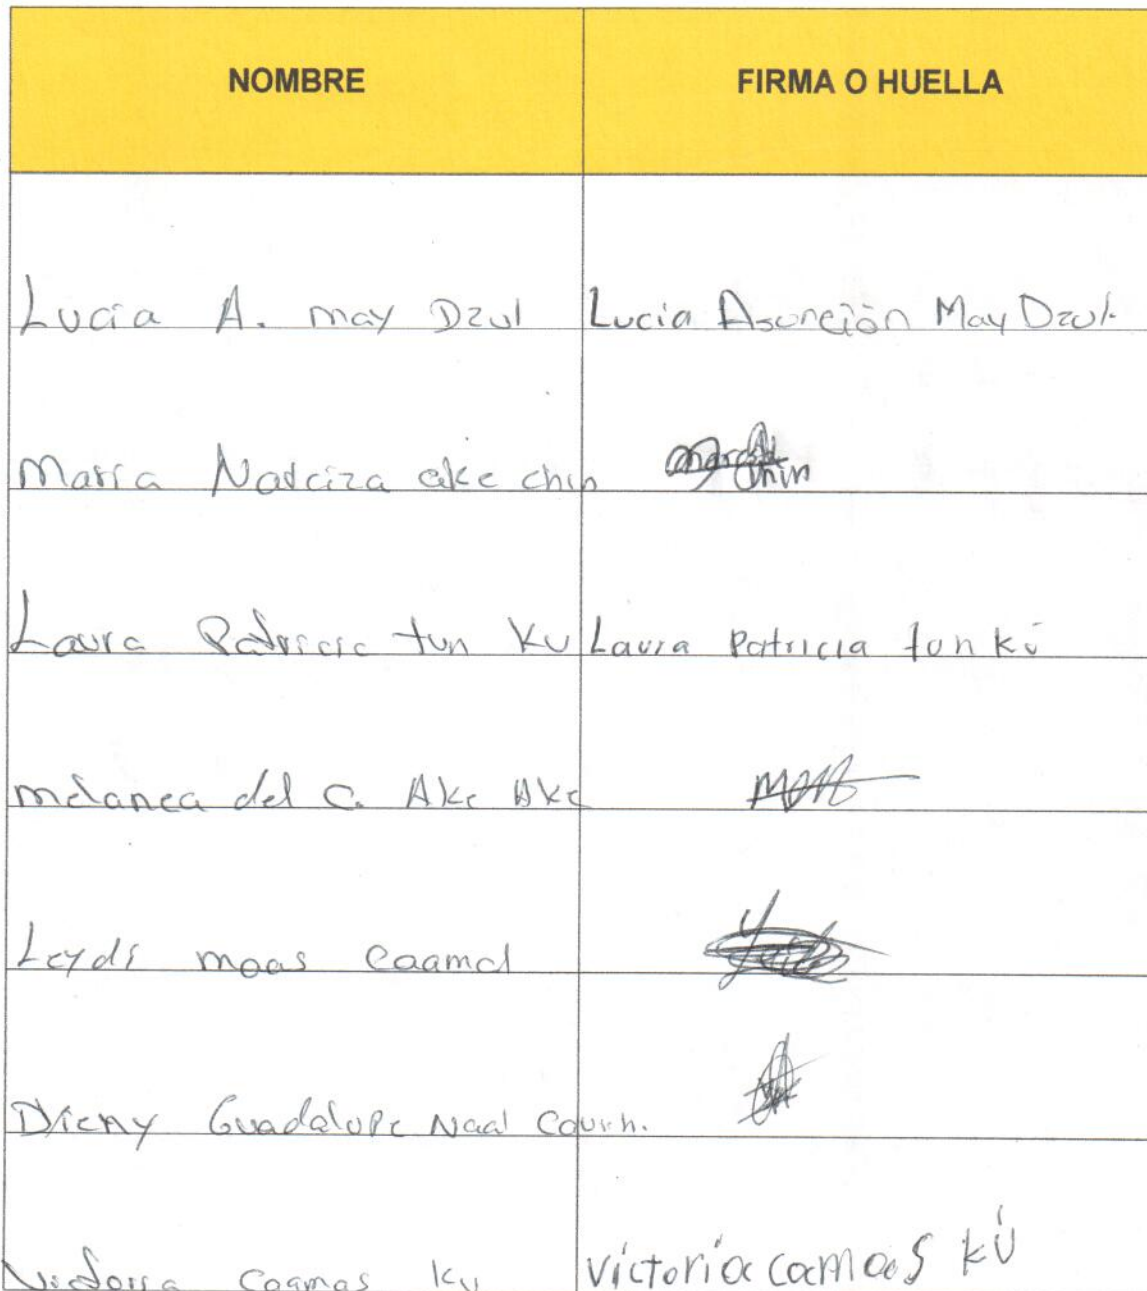 NOMBRE FIRMA O HUELLA
Lucía A. may Dzul Lucía Asunción May Dzul.
María Narciza ake chin
Laura Patricia tun Ku Laura Patricia tun kú
melanea del C. Ake Ake
Leydi moas Caamal
Guadalupe Naal
Victoria Caamas ku Victoria camas kú